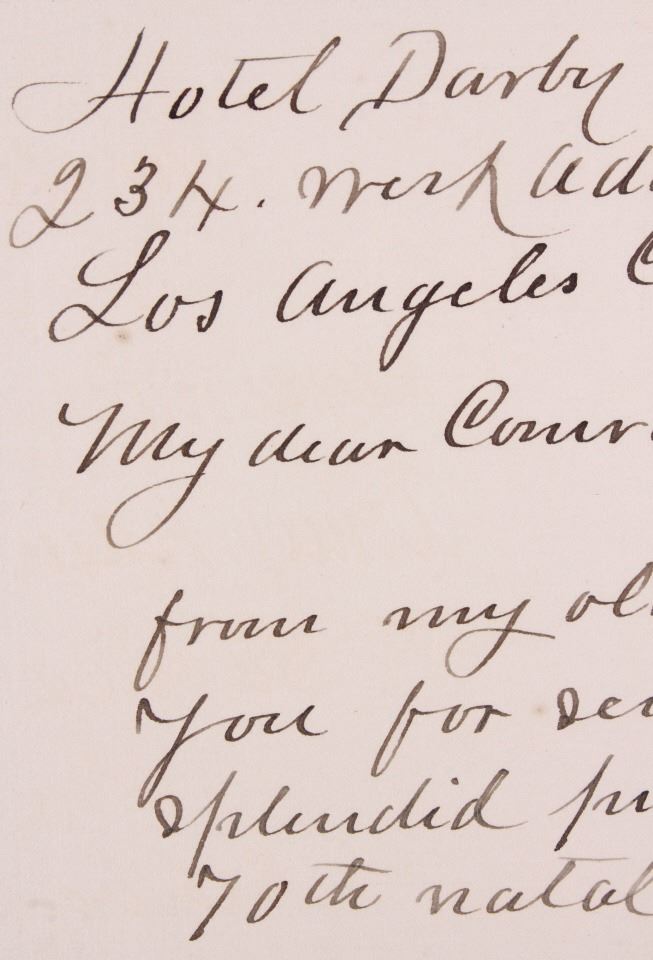 Hotel Darby
234. West Ad
Los Angeles C
My dear Comr
from my ol
you for sen
splendid pi
70th natal